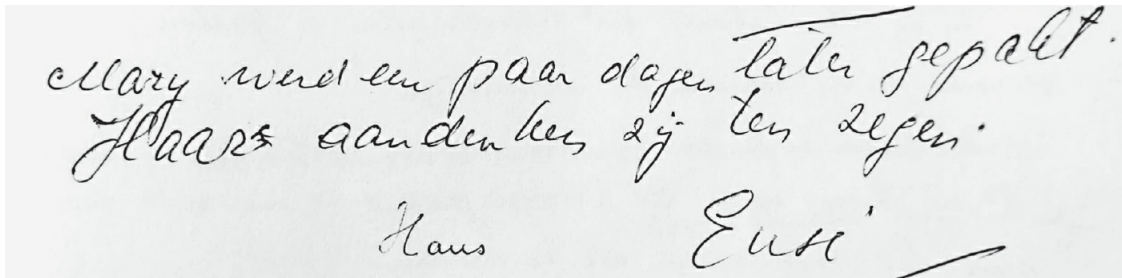 Mary werd een paar dagen later gepakt.
Haar aandenken zij ten zegen.
Hans Eusi